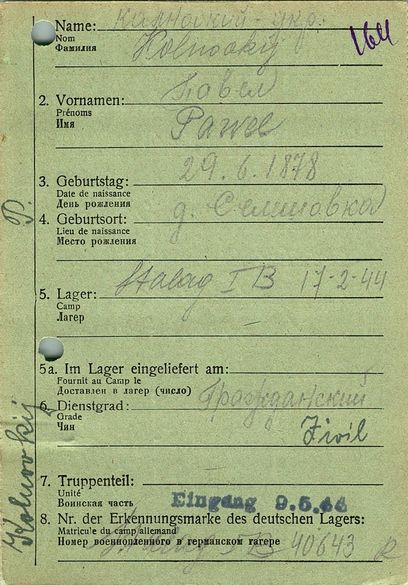 Name: Калновский - укр.
Nom
Фамилия
Kolnovskij
164
2. Vornamen: Павел
Prénoms
Имя
Pawel
3. Geburtstag: 29. 6. 1878
Date de naissance
День рождения
4. Geburtsort: д. Селиповка
Lieu de naissance
Место рождения
P.
Stalag I B 17-2-44
5. Lager:
Camp
Лагер
5a. Im Lager eingeliefert am:
Fournit au Camp le
Доставлен в лагер (число)
6. Dienstgrad: Гражданский
Grade
Чин
Zivil
Kolnovskij
7. Truppenteil:
Unité
Воинская часть
Eingang 9.5.44
8. Nr. der Erkennungsmarke des deutschen Lagers:
Matricule du camp allemand
Номер военнопленного в германском лагере
I B 40643